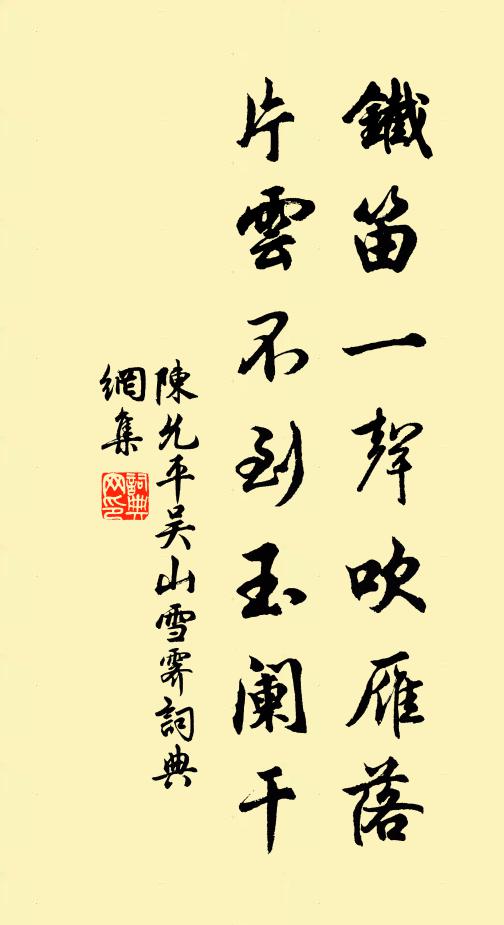 鐵笛一聲吹雁落
片雲不到玉闌干
陳允平吴山雪霽詞典
網集
詞典
网印